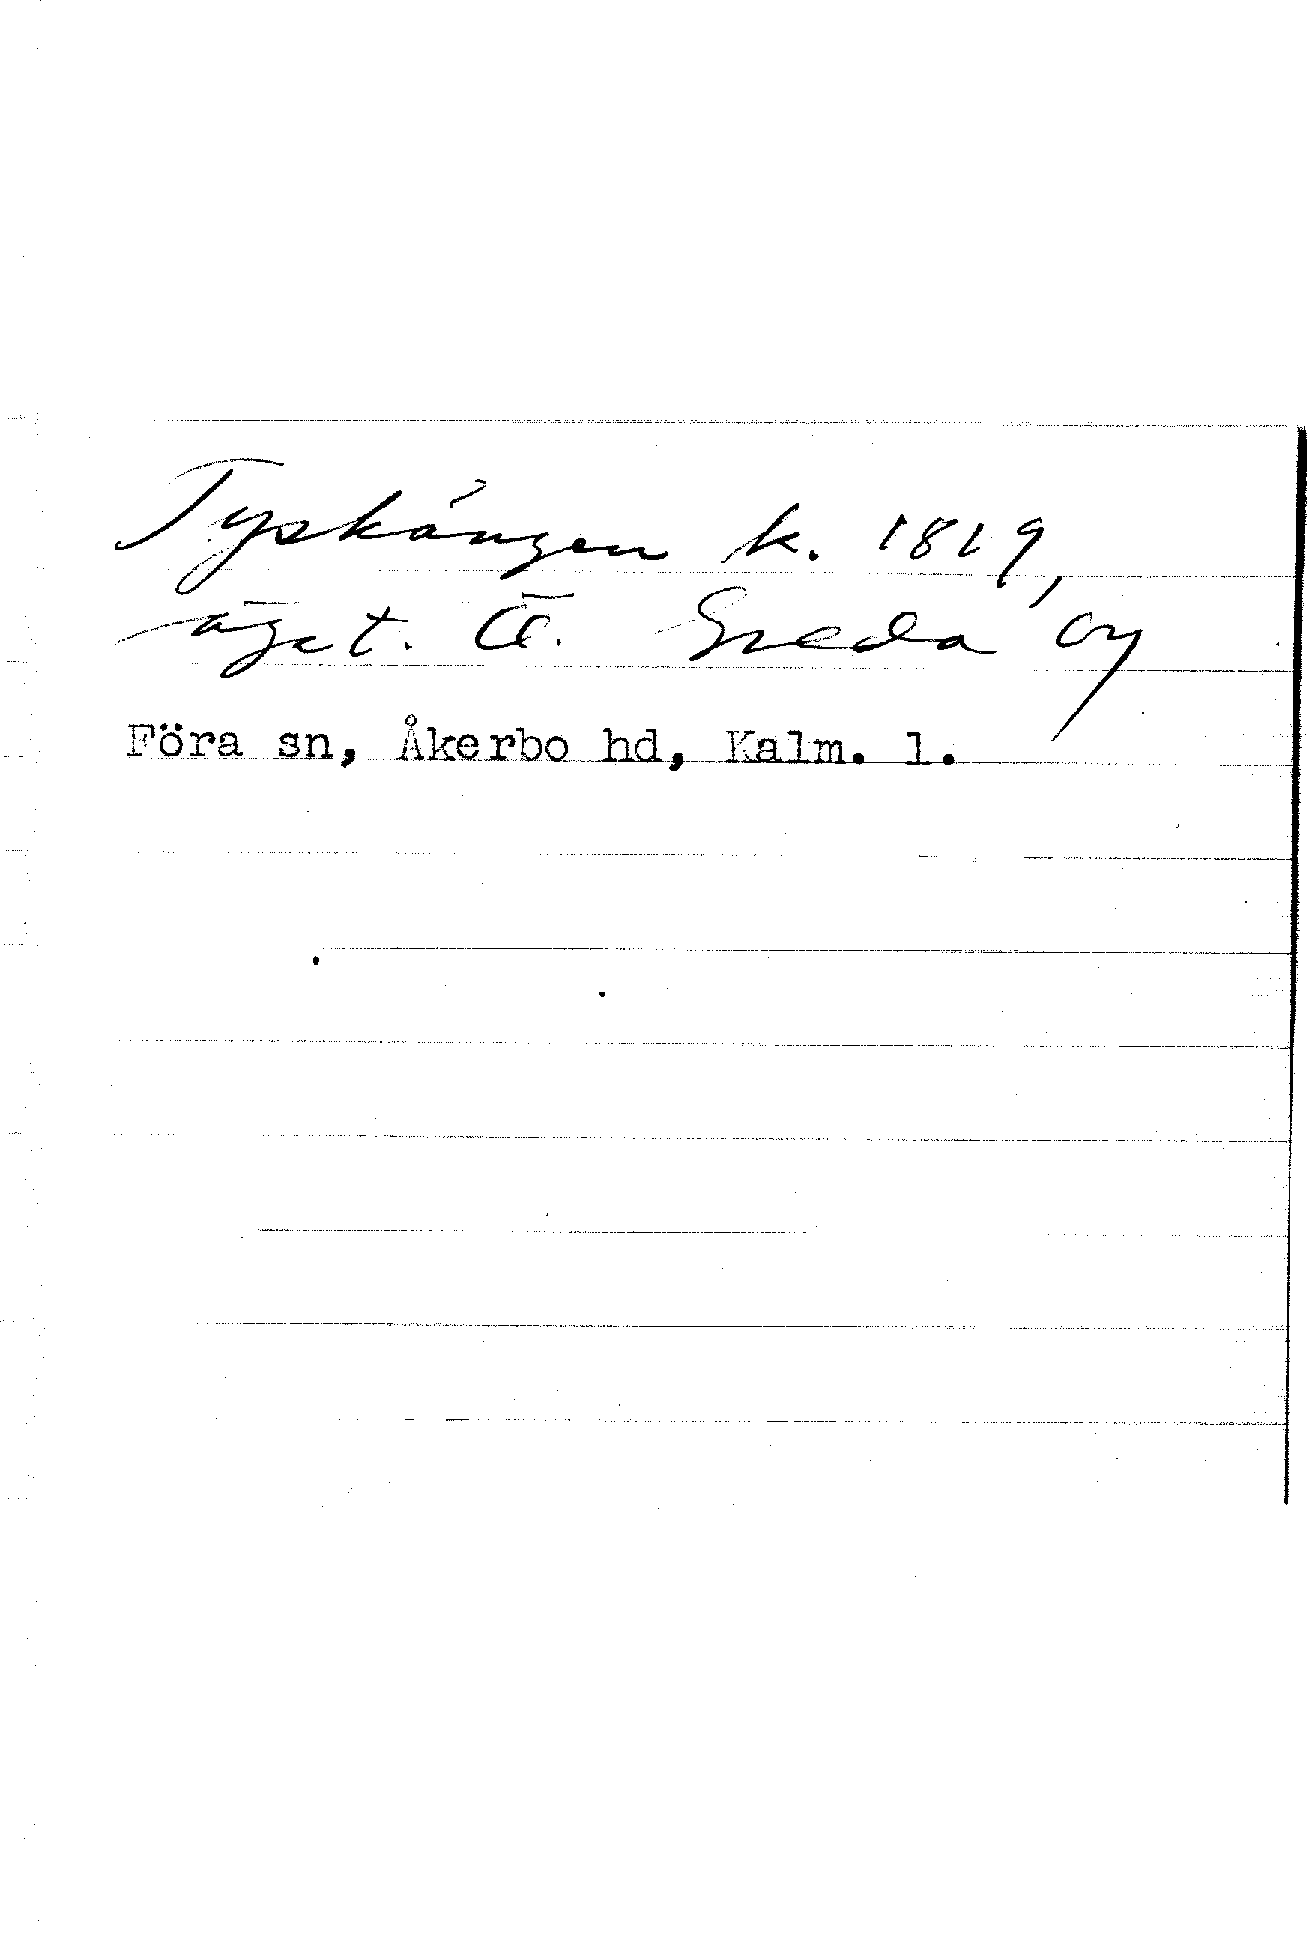 Tyskängen k. 1819,
äget. Ö. Greda By
Föra sn, Åkerbo hd, Kalm. l.